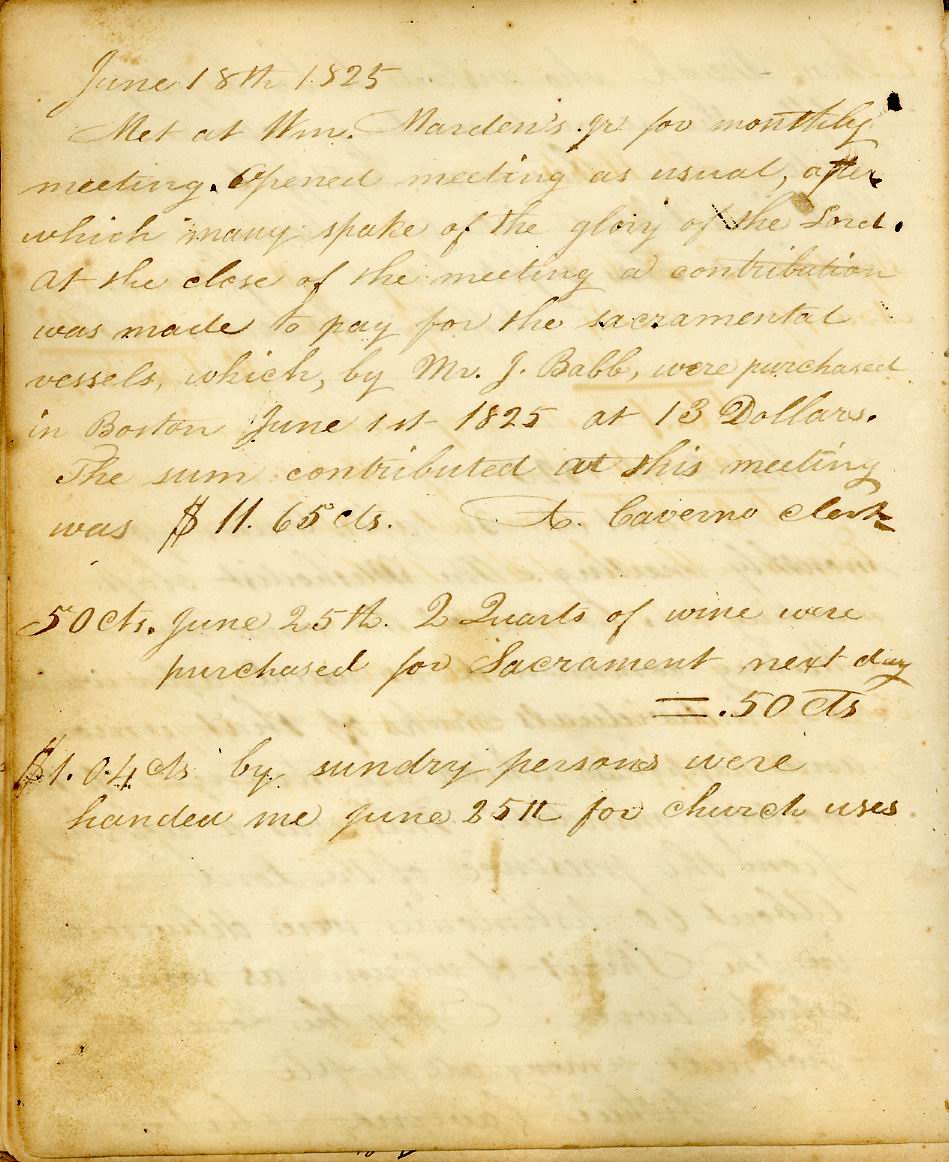 June 18th 1825
Met at Wm. Marden's jr for monthly
meeting. Opened meeting as usual, after
which many spake of the glory of the Lord.
At the close of the meeting a contribution
was made to pay for the sacramental
vessels, which, by Mr. J. Babb, were purchased
in Boston June 1st 1825 at 13 Dollars.
The sum contributed at this meeting
was $11.65 cts. A. Caverno Clerk
50 cts. June 25th. 2 Quarts of wine were
purchased for Sacrament next day
= .50 cts
$1.04 cts by sundry persons were
handed me June 25th for church uses